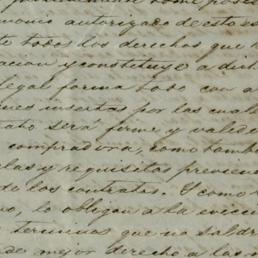 autorizado de esta es
te todos los derechos que h
acion y constituye a dich
legal forma todo con a
nes insertas por las cual
tato será firme y valede
compradora, como tambi
las y requisitos previene
de los contratos. Y como
no, lo obligan a la eviccio
terminos que no saldr
de mejor derecho a las